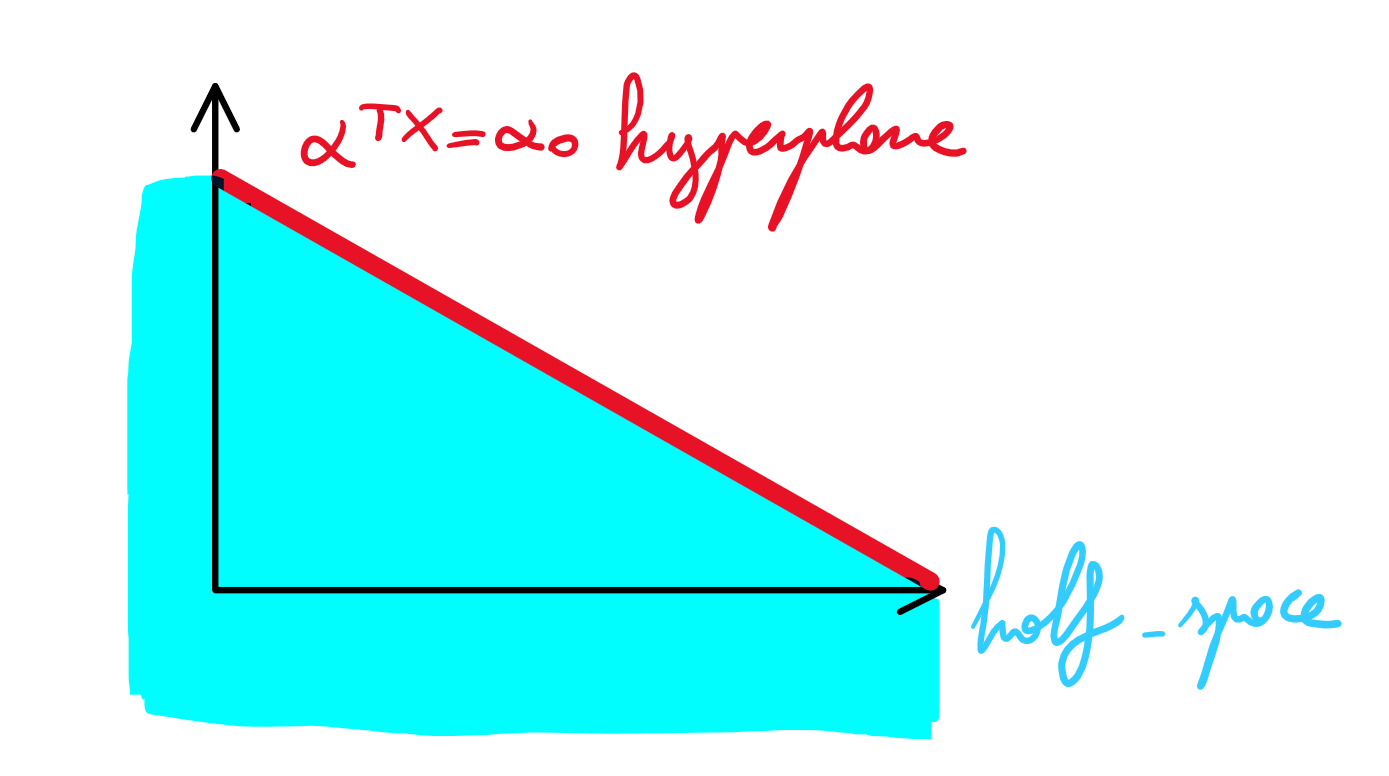 α^T X = α₀ hyperplane
half-space